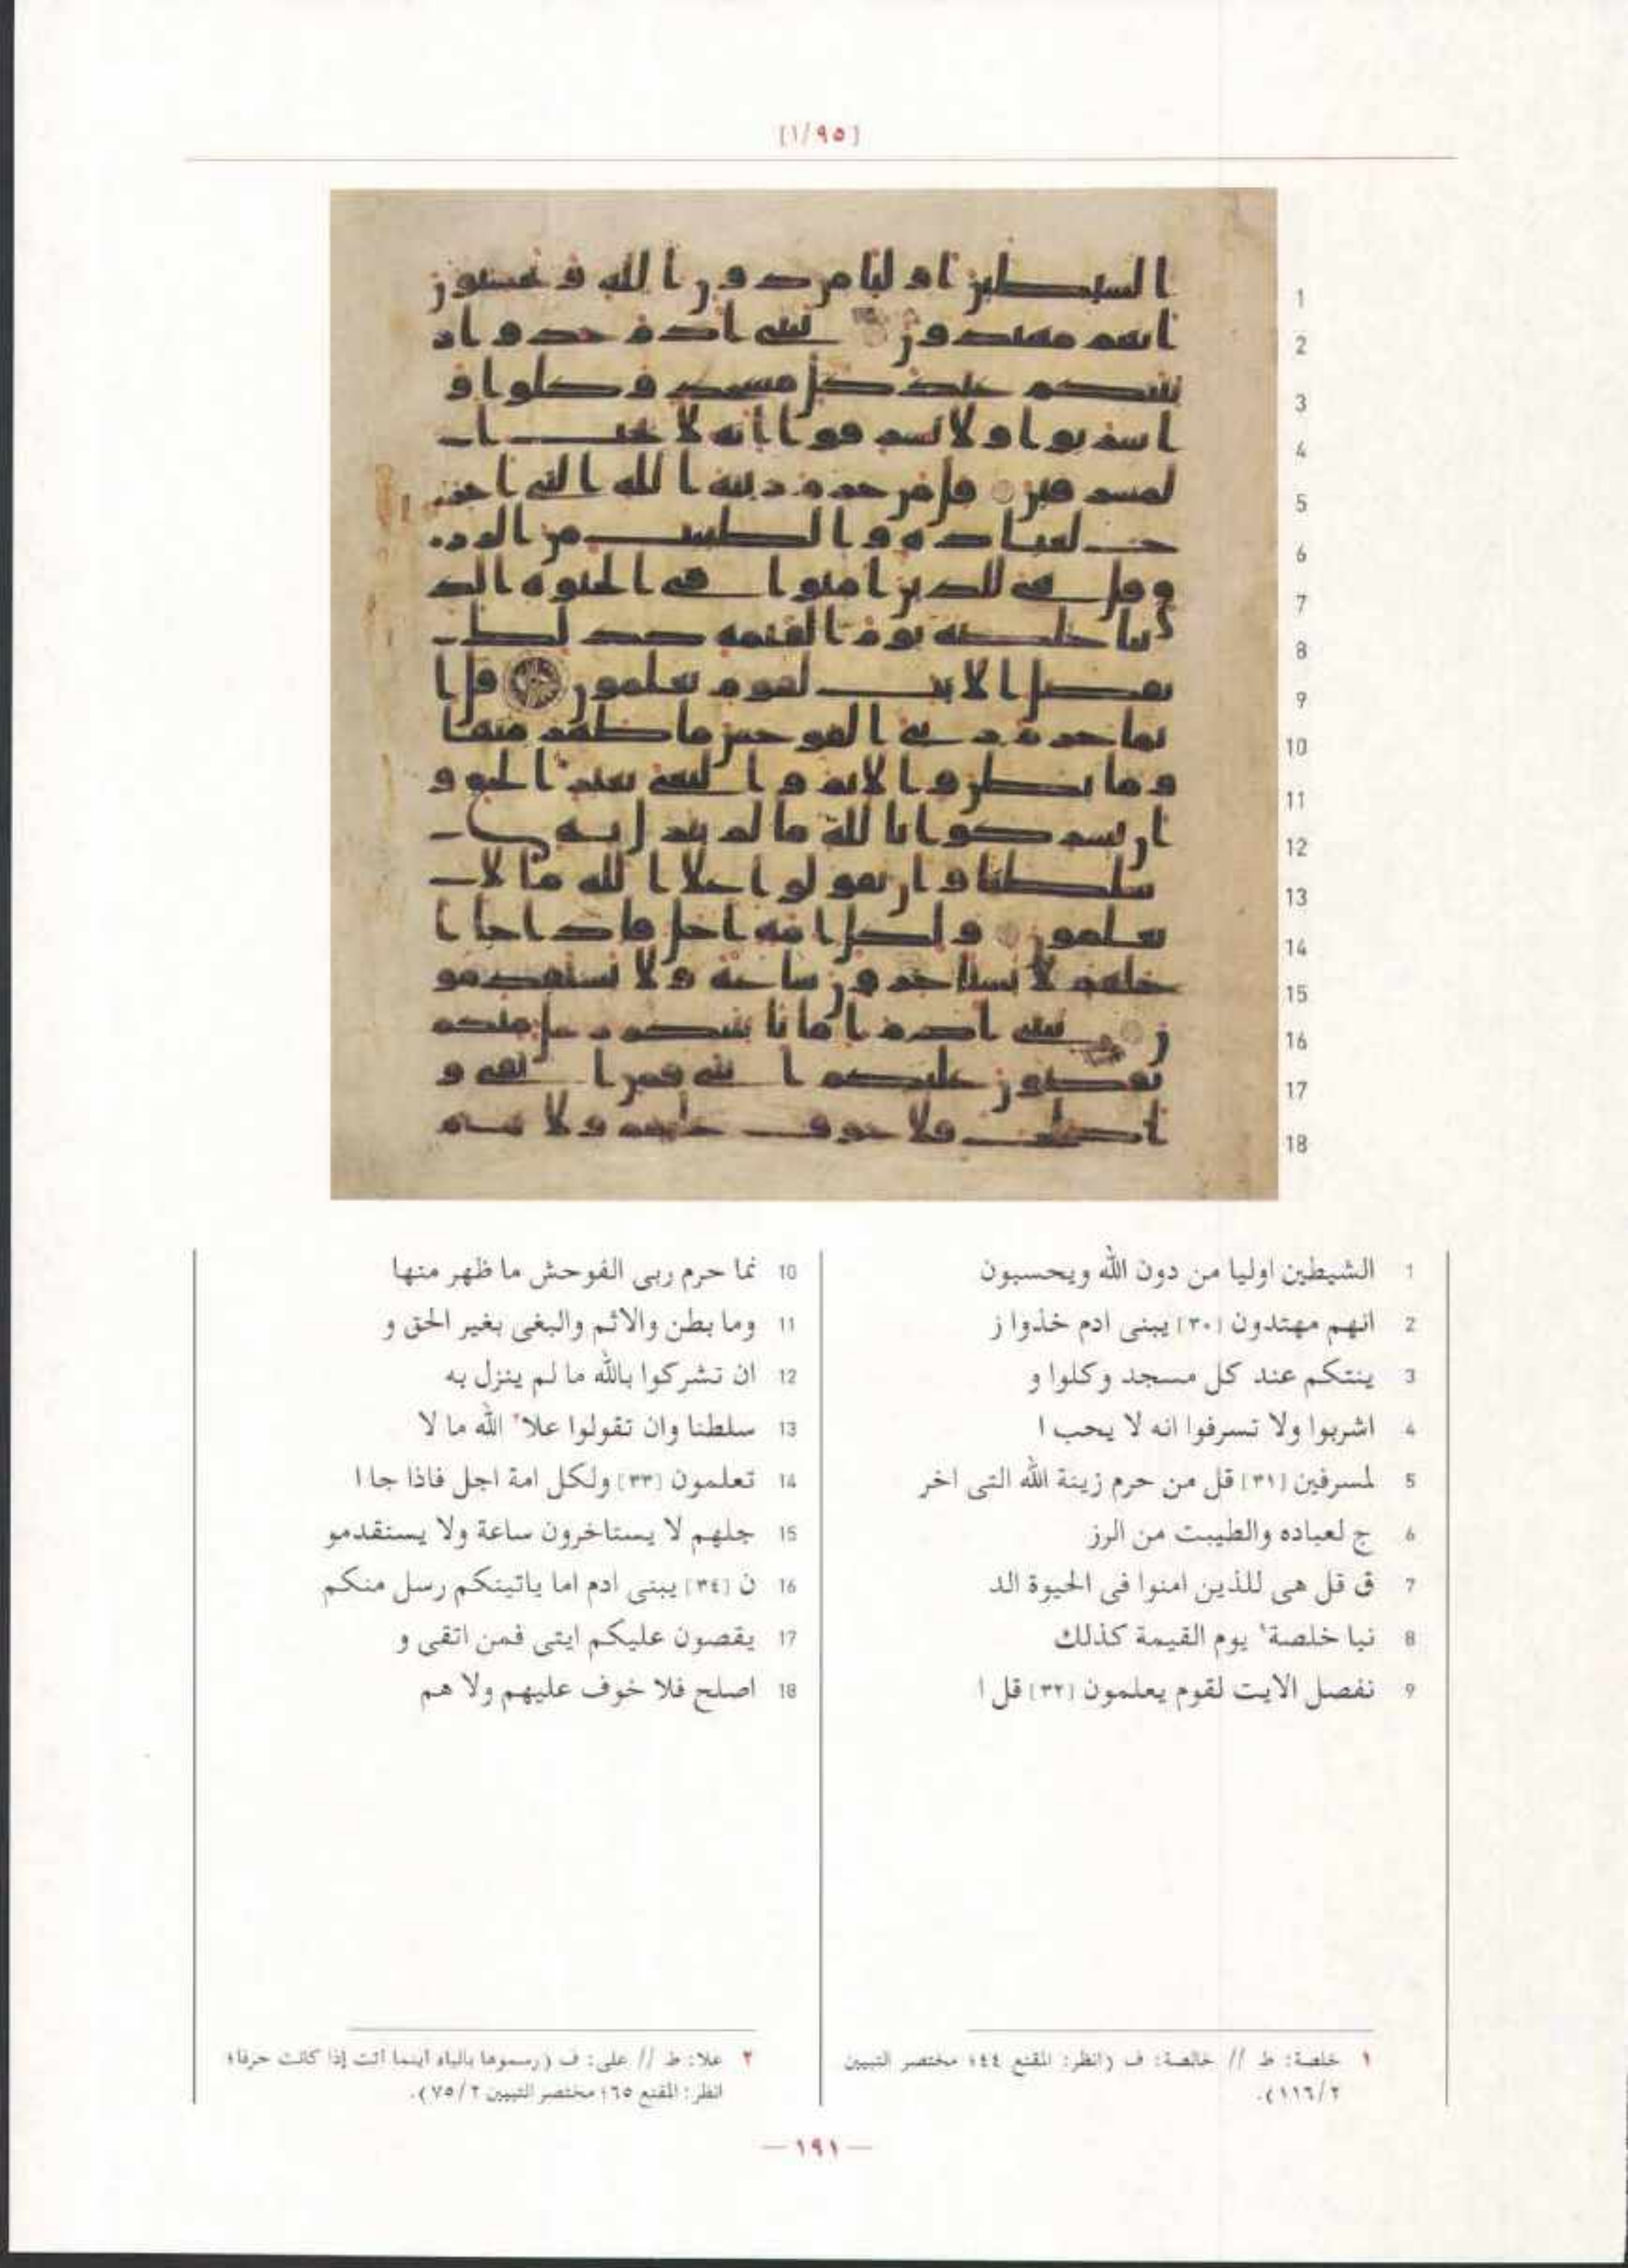 [١/٩٥]
1 الشيطين اوليا من دون الله ويحسبون
2 انهم مهتدون [٣٠] يبنى ادم خذوا ز
3 ينتكم عند كل مسجد وكلوا و
4 اشربوا ولا تسرفوا انه لا يحب ا
5 لمسرفين [٣١] قل من حرم زينة الله التى اخر
6 ج لعباده والطيبت من الرز
7 ق قل هى للذين امنوا فى الحيوة الد
8 نيا خلصة١ يوم القيمة كذلك
9 نفصل الايت لقوم يعلمون [٣٢] قل ا
10 نما حرم ربى الفوحش ما ظهر منها
11 وما بطن والاثم والبغى بغير الحق و
12 ان تشركوا بالله ما لم ينزل به
13 سلطنا وان تقولوا علا٢ الله ما لا
14 تعلمون [٣٣] ولكل امة اجل فاذا جا ا
15 جلهم لا يستاخرون ساعة ولا يستقدمو
16 ن [٣٤] يبنى ادم اما ياتينكم رسل منكم
17 يقصون عليكم ايتى فمن اتقى و
18 اصلح فلا خوف عليهم ولا هم
١ خلصة: ط // خالصة: ف (انظر: المقنع ٤٤؛ مختصر التبيين
١١٦/٢).
٢ علا: ط // على: ف (رسموها بالياء اينما اتت إذا كانت حرفا؛
انظر: المقنع ٦٥؛ مختصر التبيين ٧٥/٢).
— ١٩١ —